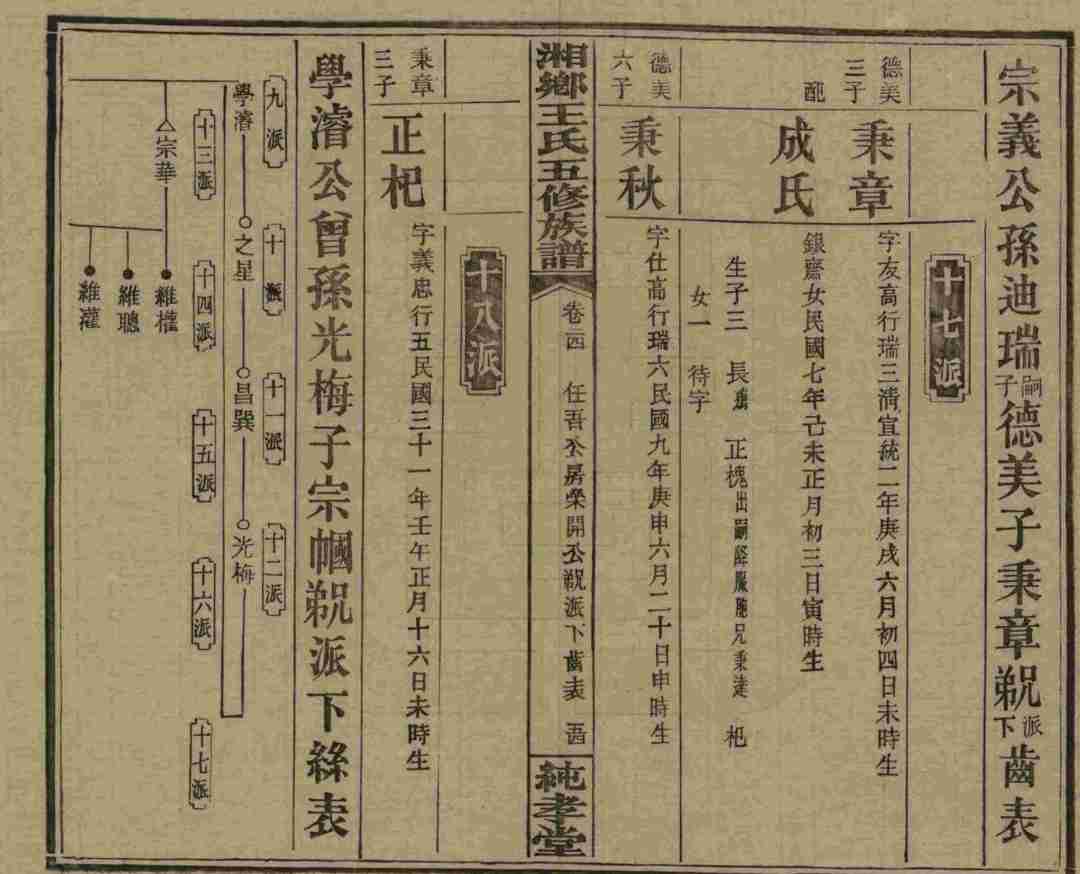 宗義公孫迪瑞嗣子德美子秉章㲽派下齒表
十七派
德美三子
秉章
字友高行瑞三清宣統二年庚戌六月初四日未時生
配
成氏
銀齋女民國七年己未正月初三日寅時生
生子三　長　正槐出嗣降服胞兄秉達　杞
女一　待字
德美六子
秉秋
字仕高行瑞六民國九年庚申六月二十日申時生
湘鄉王氏五修族譜
卷六四　任吾公房榮開公㲽派下齒表
純孝堂
十八派
秉章三子
正杞
字義忠行五民國三十一年壬午正月十六日未時生
學濬公曾孫光梅子宗幗㲽派下絲表
九派
十派
十一派
十二派
學濬
之星
昌巽
光梅
十三派
十四派
十五派
十六派
十七派
宗華
維權
維聰
維灌